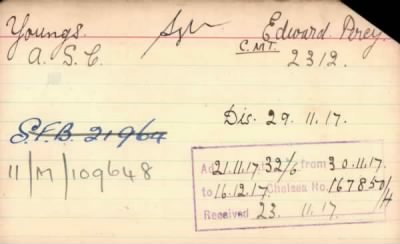 Youngs. Sgt Edward Percy.
A. S. C. C.M.T. 2312.
Dis. 29. 11. 17.
S.F.B. 21964
11/M/109648
21.11.17 32/6 from 30.11.17.
to 16.12.17. Chelsea No. 167850/H
Received 23. 11. 17.